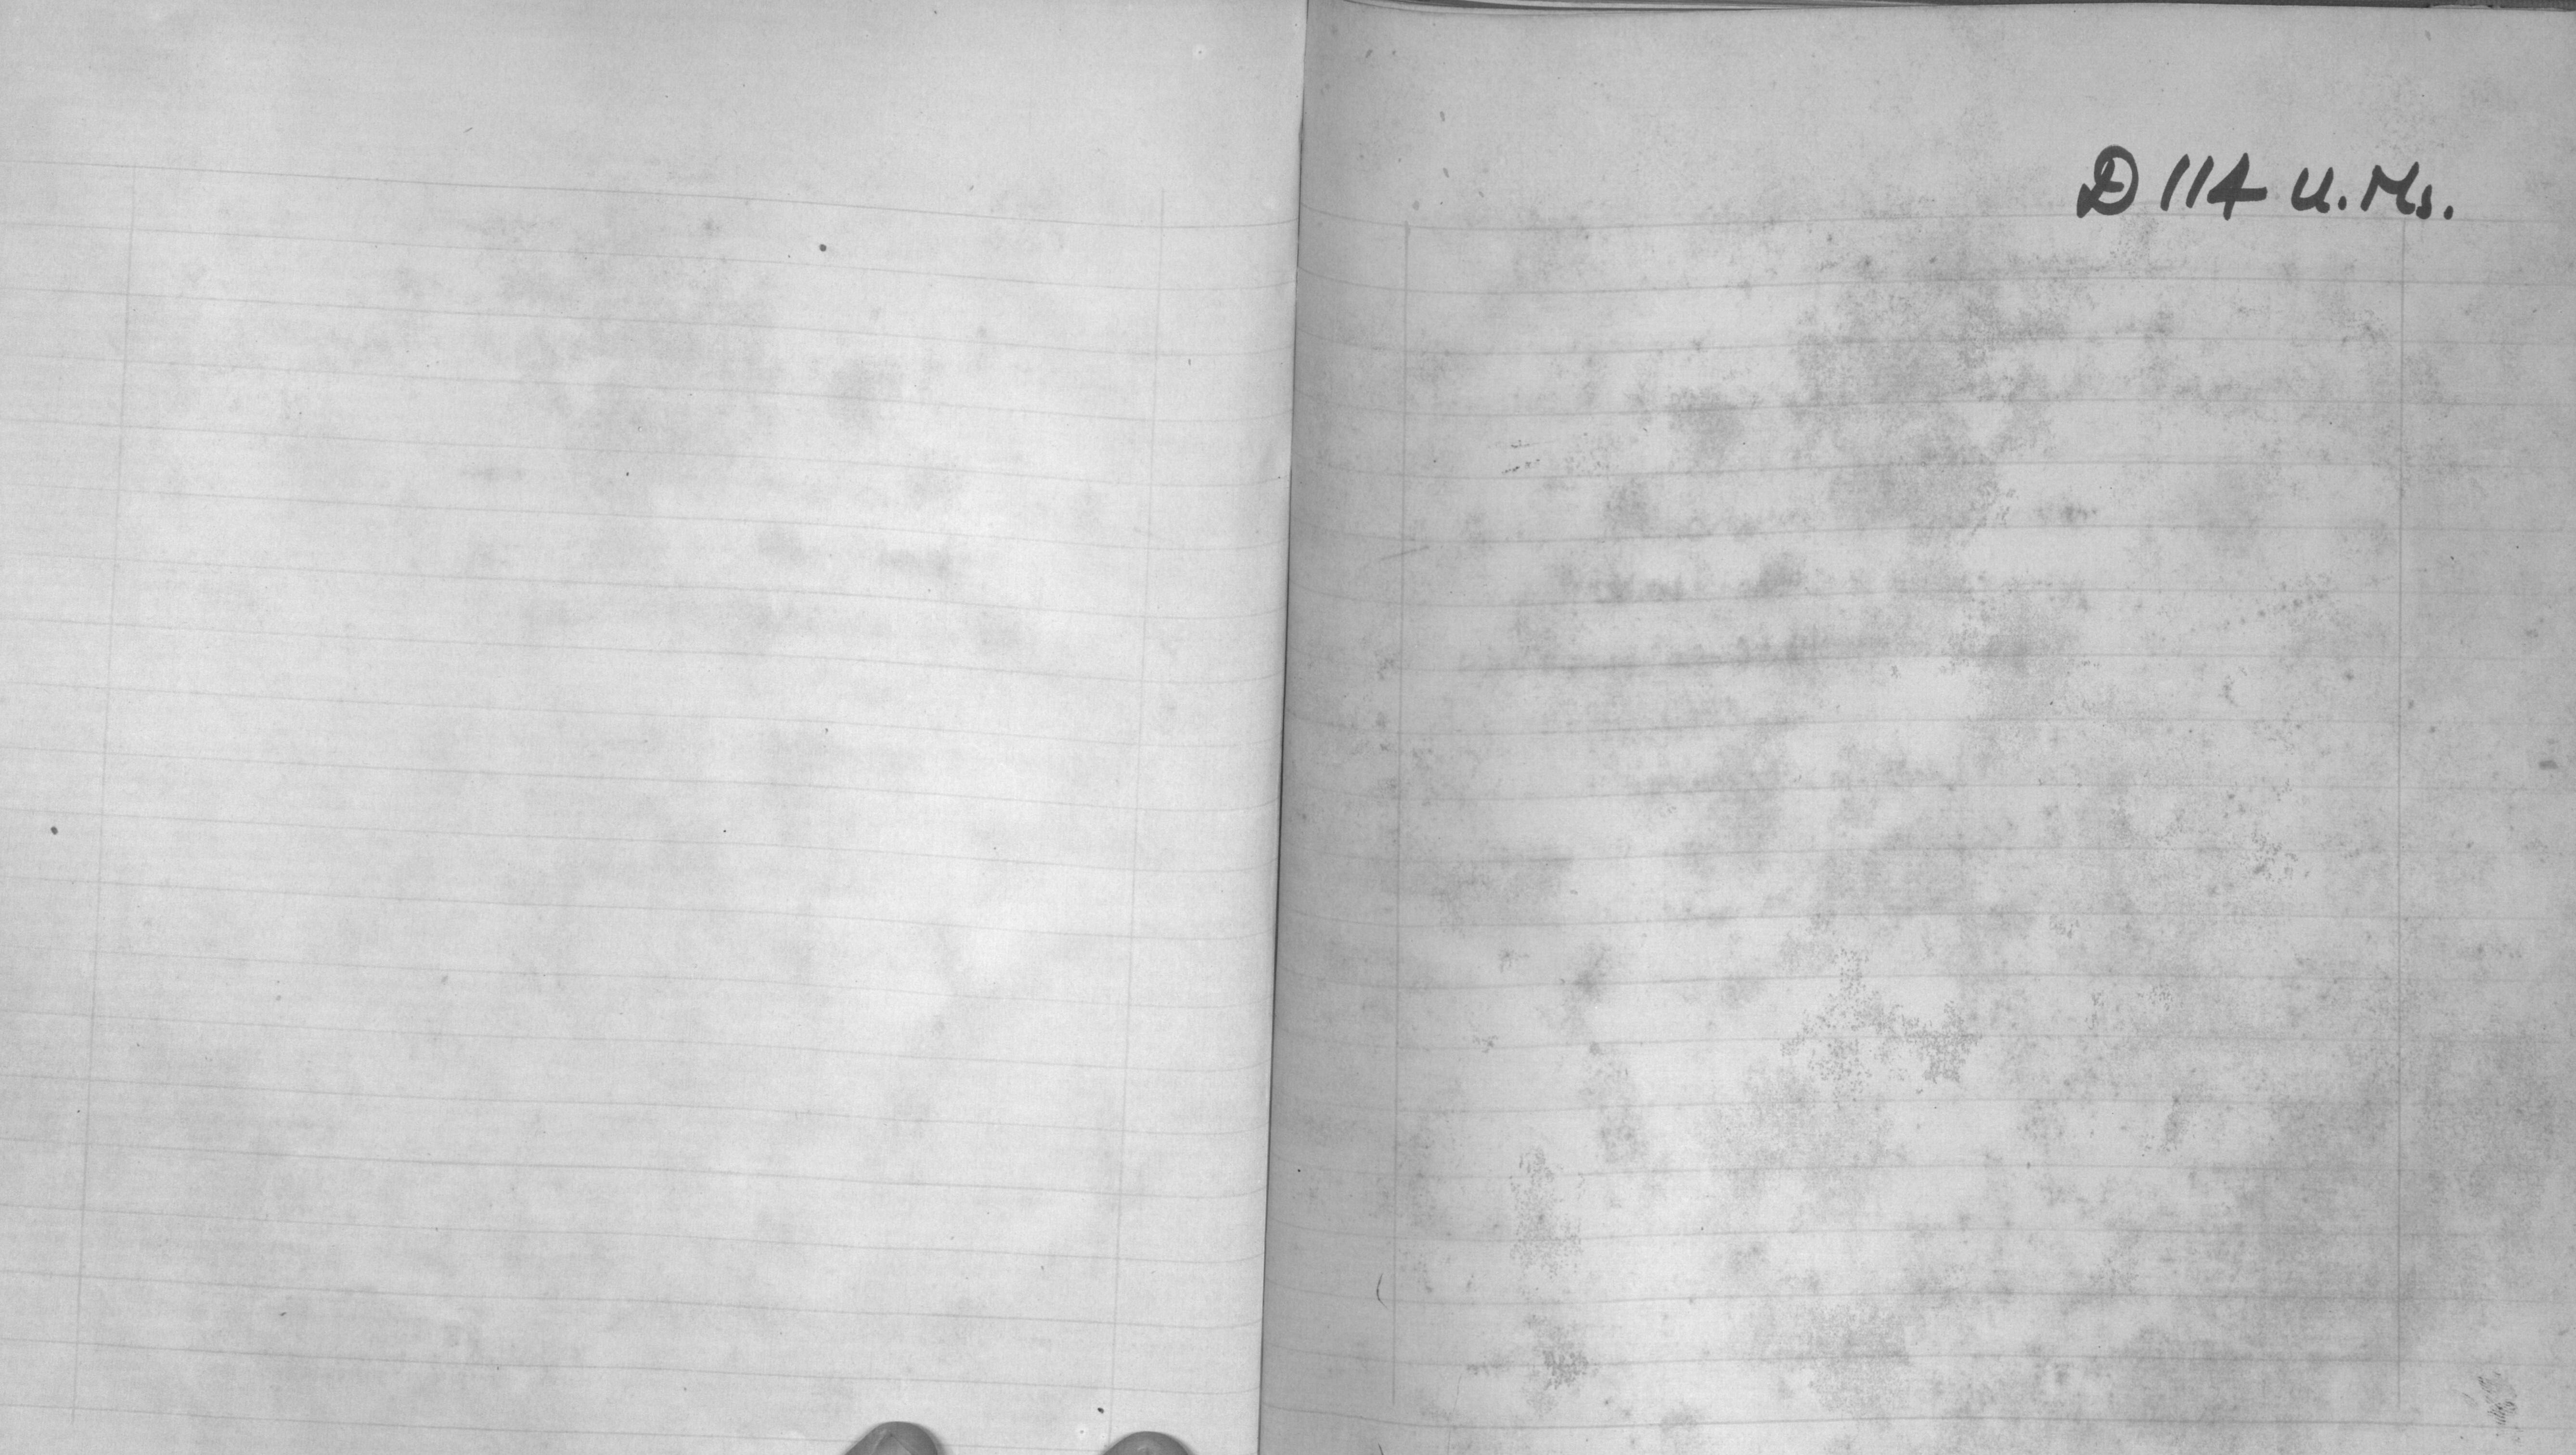 D 114 U. Ms.